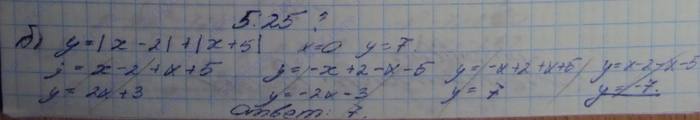 5.25 ?
б) y=|x-2|+|x+5| x=0 y=7.
y=x-2+x+5 y=-x+2-x-5 y=-x+2+x+5 y=x-2-x-5
y=2x+3 y=-2x-3 y=7 y=-7.
Ответ: 7.